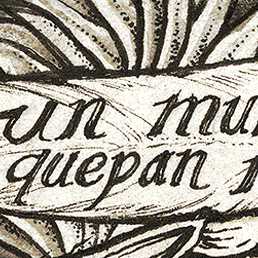 un mu
quepan